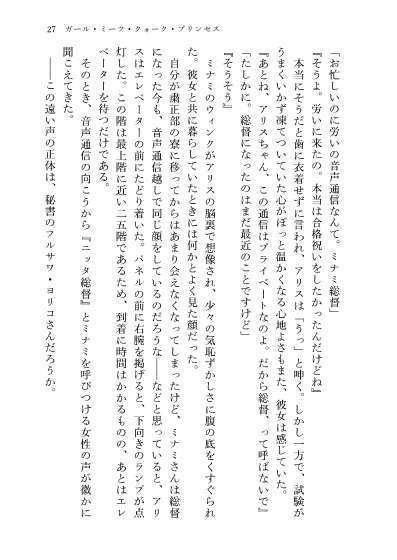 27　ガール・ミーツ・クォーク・プリンセス
「お忙しいのに労いの音声通信なんて。ミナミ総督」
『そうよ。労いに来たの。本当は合格祝いをしたかったんだけどね』
本当にそうだと歯に衣着せずに言われ、アリスは「うっ」と呻く。しかし一方で、試験が
うまくいかず凍てついていた心がぽっと温かくなる心地よさもまた、彼女は感じていた。
『あとね、アリスちゃん、この通信はプライベートなのよ。だから総督、って呼ばないで』
「たしかに。総督になったのはまだ最近のことですけど」
『そうそう』
ミナミのウィンクがアリスの脳裏で想像され、少々の気恥ずかしさに腹の底をくすぐられ
た。彼女と共に暮らしていたときには何かとよく見た顔だった。
自分が粛正部の寮に移ってからはあまり会えなくなってしまったけど、ミナミさんは総督
になった今も、音声通信越しで同じ顔をしているのだろうな――などと思っていると、アリ
スはエレベーターの前にたどり着いた。パネルの前に右腕を掲げると、下向きのランプが点
灯した。この階は最上階に近い二五階であるため、到着に時間はかかるものの、あとはエレ
ベーターを待つだけである。
そのとき、音声通信の向こうから『ニッタ総督』とミナミを呼びつける女性の声が微かに
聞こえてきた。
――この遠い声の正体は、秘書のフルサワ・ヨリコさんだろうか。